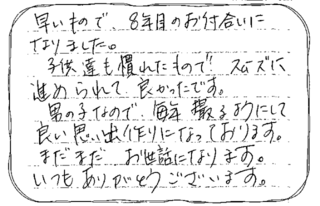 早いもので、8年目のお付合いに
なりました。
子供達も慣れたもので!スムーズに
進められて 良かったです。
男の子なので、毎年 撮るようにして
良い思い出作りになっております。
まだまだ お世話になります。
いつもありがとうございます。